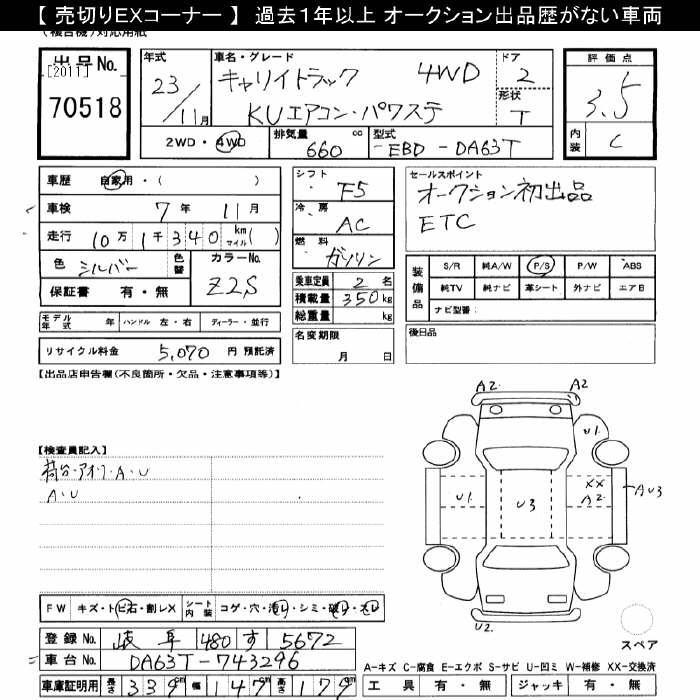 【 売切りEXコーナー 】 過去1年以上 オークション出品歴がない車両
(複合機)対応用紙
出品No. [2011] 70518
年式 23/11月
車名・グレード キャリイトラック 4WD KUエアコン・パワステ
ドア 2
形状 T
評価点 3.5
内装 C
2WD・4WD 排気量 660 cc 型式 -EBD-DA63T
車歴 自家用・( )
車検 7年 11月
走行 10万1千340 km マイル( )
色 シルバー 色替 カラーNo. Z2S
保証書 有・無
シフト F5
冷房 AC
燃料 ガソリン
乗車定員 2名
積載量 350kg
総重量 kg
セールスポイント
オークション初出品
ETC
装備品 S/R 純A/W P/S P/W ABS
純TV 純ナビ 革シート 外ナビ エアB
ナビ型番:
モデル年式 年 ハンドル 左・右 ディーラー・並行
名変期限 月 日
後日品
リサイクル料金 5,070 円 預託済
【出品店申告欄(不良箇所・欠品・注意事項等)】
【検査員記入】
荷台・アオリ・A・U
A・U
A2 A2
U1
U1 U3 XX A2 AU3
U2
FW キズ・トビ石・割レX シート内装 コゲ・穴・汚レ・シミ・破レ・スレ
登録No. 岐阜 480 す 5672
車台No. DA63T-743296
車庫証明用 長さ 339cm 幅 147cm 高さ 179cm
スペア
A-キズ C-腐食 E-エクボ S-サビ U-凹ミ W-補修 XX-交換済
工具 有・無 ジャッキ 有・無